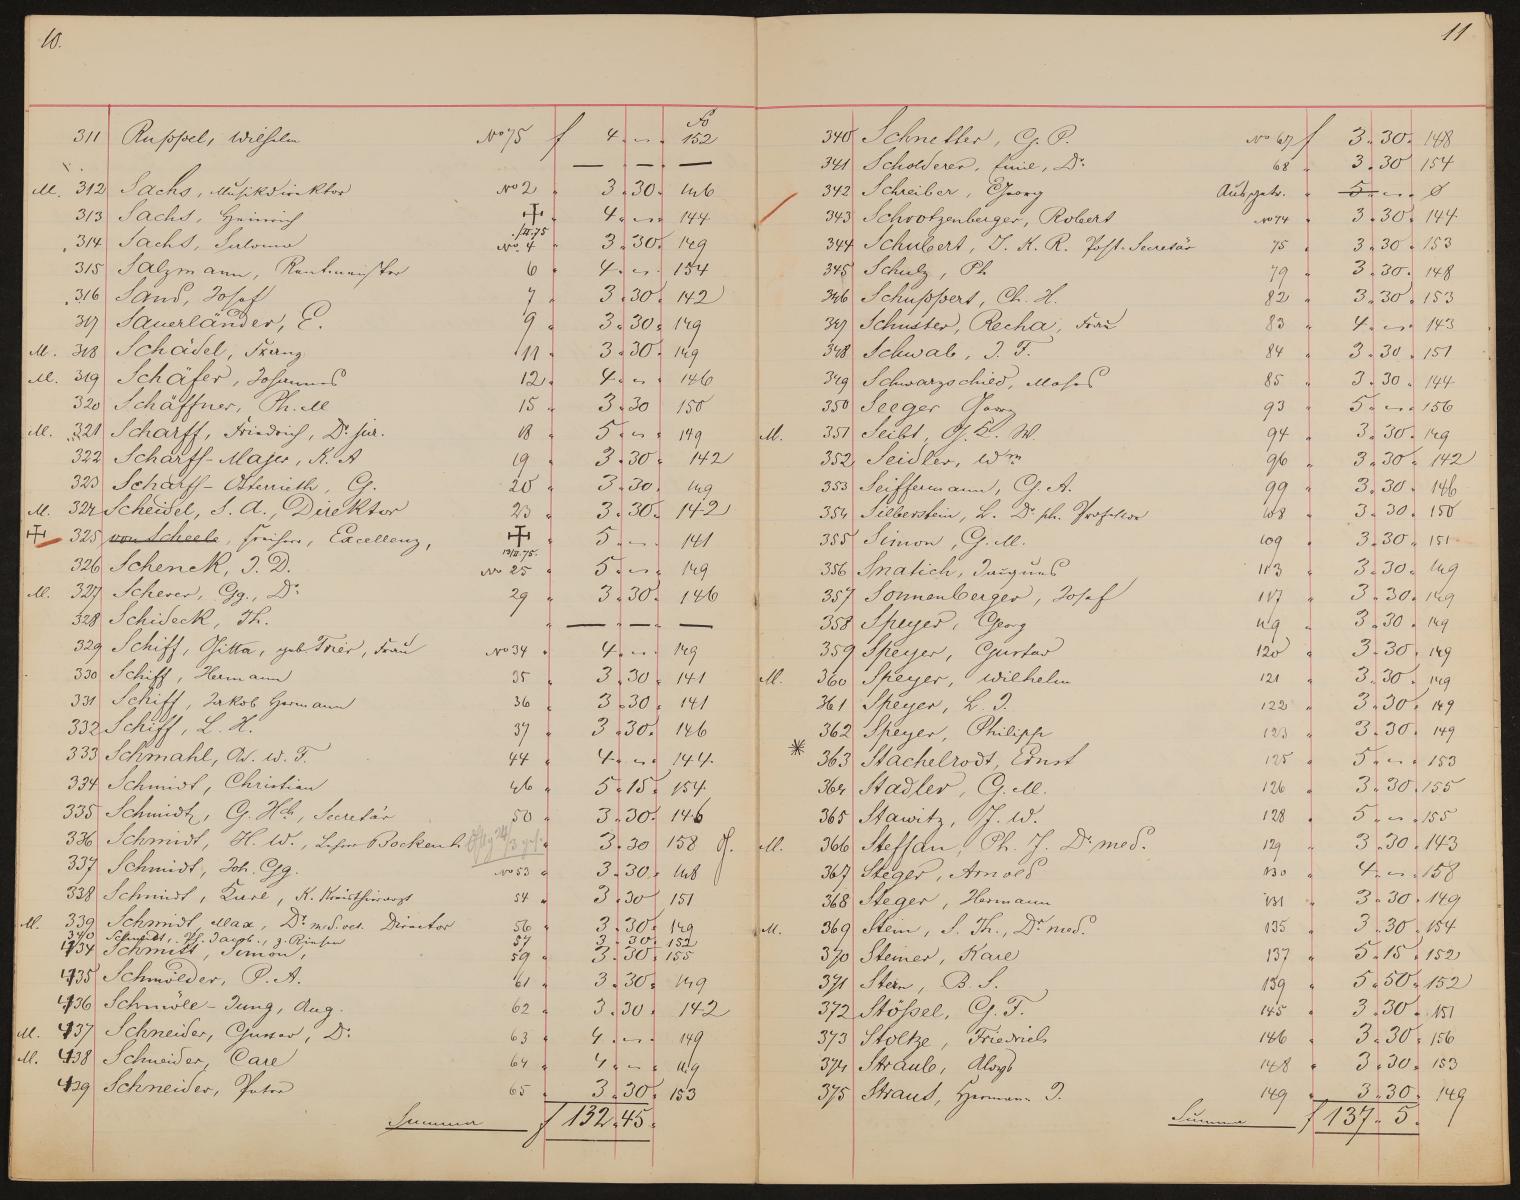 10.
Fo
311 Ruppel, Wilhelm No 75 f 4 " – " 152
— — —
M. 312 Sachs, Musikdirektor No 2 " 3 " 30 " 146
313 Sachs, Heinrich ✝ " 4 " – " 144
1/II.75
314 Sachs, Salomo No. 4 " 3 " 30 " 149
315 Salzmann, Rentmeister 6 " 4 " – " 154
316 Sand, Josef 7 " 3 " 30 " 142
317 Sauerländer, E. 9 " 3 " 30 " 149
M. 318 Schädel, Franz 11 " 3 " 30 " 149
M. 319 Schäfer, Johannes 12 " 4 " – " 146
320 Schäffner, Ph. M 15 " 3 " 30 150
M. 321 Scharff, Friedrich, Dr. jur. 18 " 5 " – " 149
322 Scharff-Majer, K. A 19 " 3 " 30 " 142
323 Scharff-Osterrieth, G. 20 " 3 " 30 " 149
M. 324 Scheidel, S. A., Direktor 23 " 3 " 30 " 142
✝ 325 von Scheele, Freiherr, Excellenz, ✝ " 5 " – " 141
13/II.75.
326 Schenck, J. D. No 25 " 5 " – " 149
M. 327 Scherer, Gg., Dr. 29 " 3 " 30 " 146
328 Schideck, Th. " — — —
329 Schiff, Gitta, geb Trier, Frau No 34 " 4 " – " 149
330 Schiff, Hermann 35 " 3 " 30 " 141
331 Schiff, Jakob Hermann 36 " 3 " 30 " 141
332 Schiff, L. H. 37 " 3 " 30 " 146
333 Schmahl, W. F. 44 " 4 " – " 144
334 Schmidt, Christian 46 " 5 " 15 " 154
335 Schmidt, G. Hch., Secretär 50 " 3 " 30 " 146
336 Schmidt, H. W., Lehrer Bockenh. " 3 " 30 158
337 Schmidt, Joh. Gg. No 53 " 3 " 30 " 148
338 Schmidt, Karl, K. 54 " 3 " 30 151
M. 339 Schmidt, Max, Dr. med. vet. Director 56 " 3 " 30 " 149
340 Schmidt, Ph. Jacob, 57 3 " 30 " 152
434 Schmitt, Simon, 59 " 3 " 30 " 155
435 Schmölder, P. A. 61 " 3 " 30 " 149
436 Schmöle-Jung, Aug. 62 " 3 " 30 " 142
M. 437 Schneider, Gustav, Dr. 63 " 4 " – " 149
M. 438 Schneider, Carl 64 " 4 " – " 149
439 Schneider, Peter 65 " 3 " 30 " 153
Summa f 132 " 45 "
11
340 Schnetter, G. P. No 67 f 3 " 30 " 148
341 Scholderer, Emil, Dr. 68 " 3 " 30 154
342 Schreiber, Georg Ausgetr. " 5 " – " 0
343 Schrotzenberger, Robert No 74 " 3 " 30 " 144
344 Schubert, J. K. R. Post-Secretär 75 " 3 " 30 " 153
345 Schulz, Ph 79 " 3 " 30 " 148
346 Schuppert, Ch. H. 82 " 3 " 30 " 153
347 Schuster, Recha, Frau 83 " 4 " – " 143
348 Schwab, J. F. 84 " 3 " 30 " 151
349 Schwarzschild, Moses 85 " 3 " 30 " 144
350 Seeger Georg 93 " 5 " – " 156
M. 351 Seibt, W. 94 " 3 " 30 " 149
352 Seidler, Wm 96 " 3 " 30 " 142
353 Seiffermann, G. A. 99 " 3 " 30 " 146
354 Silberstein, L. Dr. ph. Professor 108 " 3 " 30 " 150
355 Simon, G. M. 109 " 3 " 30 " 151
356 Snatich, Jacques 113 " 3 " 30 " 149
357 Sonnenberger, Josef 117 " 3 " 30 " 149
358 Speyer, Georg 119 " 3 " 30 " 149
359 Speyer, Gustav 120 " 3 " 30 " 149
M. 360 Speyer, Wilhelm 121 " 3 " 30 " 149
361 Speyer, L. J. 122 " 3 " 30 " 149
362 Speyer, Philipp 123 " 3 " 30 " 149
* 363 Stachelrodt, Ernst 125 " 5 " – " 153
364 Stadler, G. M. 126 " 3 " 30 " 155
365 Stawitz, J. W. 128 " 5 " – " 155
M. 366 Steffan, Ph. J. Dr. med. 129 " 3 " 30 " 143
367 Steger, Arnold 130 " 4 " – " 158
368 Steger, Hermann 131 " 3 " 30 " 149
M. 369 Stein, S. Th., Dr. med. 135 " 3 " 30 " 154
370 Steiner, Karl 137 " 5 " 15 " 152
371 Stern, B. S. 139 " 5 " 50 " 152
372 Stößel, G. F. 145 " 3 " 30 " 151
373 Stoltze, Friedrich 146 " 3 " 30 " 156
374 Straub, Aloys 148 " 3 " 30 " 153
375 Straus, Hermann J. 149 " 3 " 30 " 149
Summa f 137 " 5 "